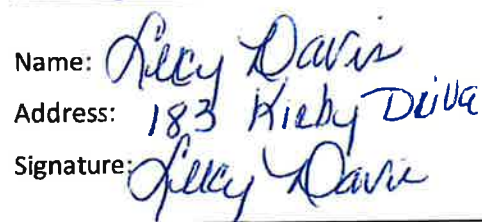 Name: Lucy Davis
Address: 183 Kirby Drive
Signature: Lucy Davis